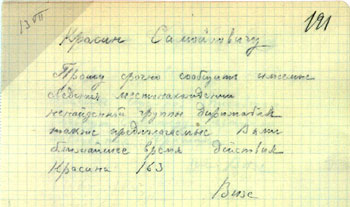 13 VII
191
Красин Самойловичу
Прошу срочно сообщить имеющиеся
сведения местонахождении
ненайденной группы дирижабля
также предполагаемые Вами
ближайшее время действия
Красина 163
Визе